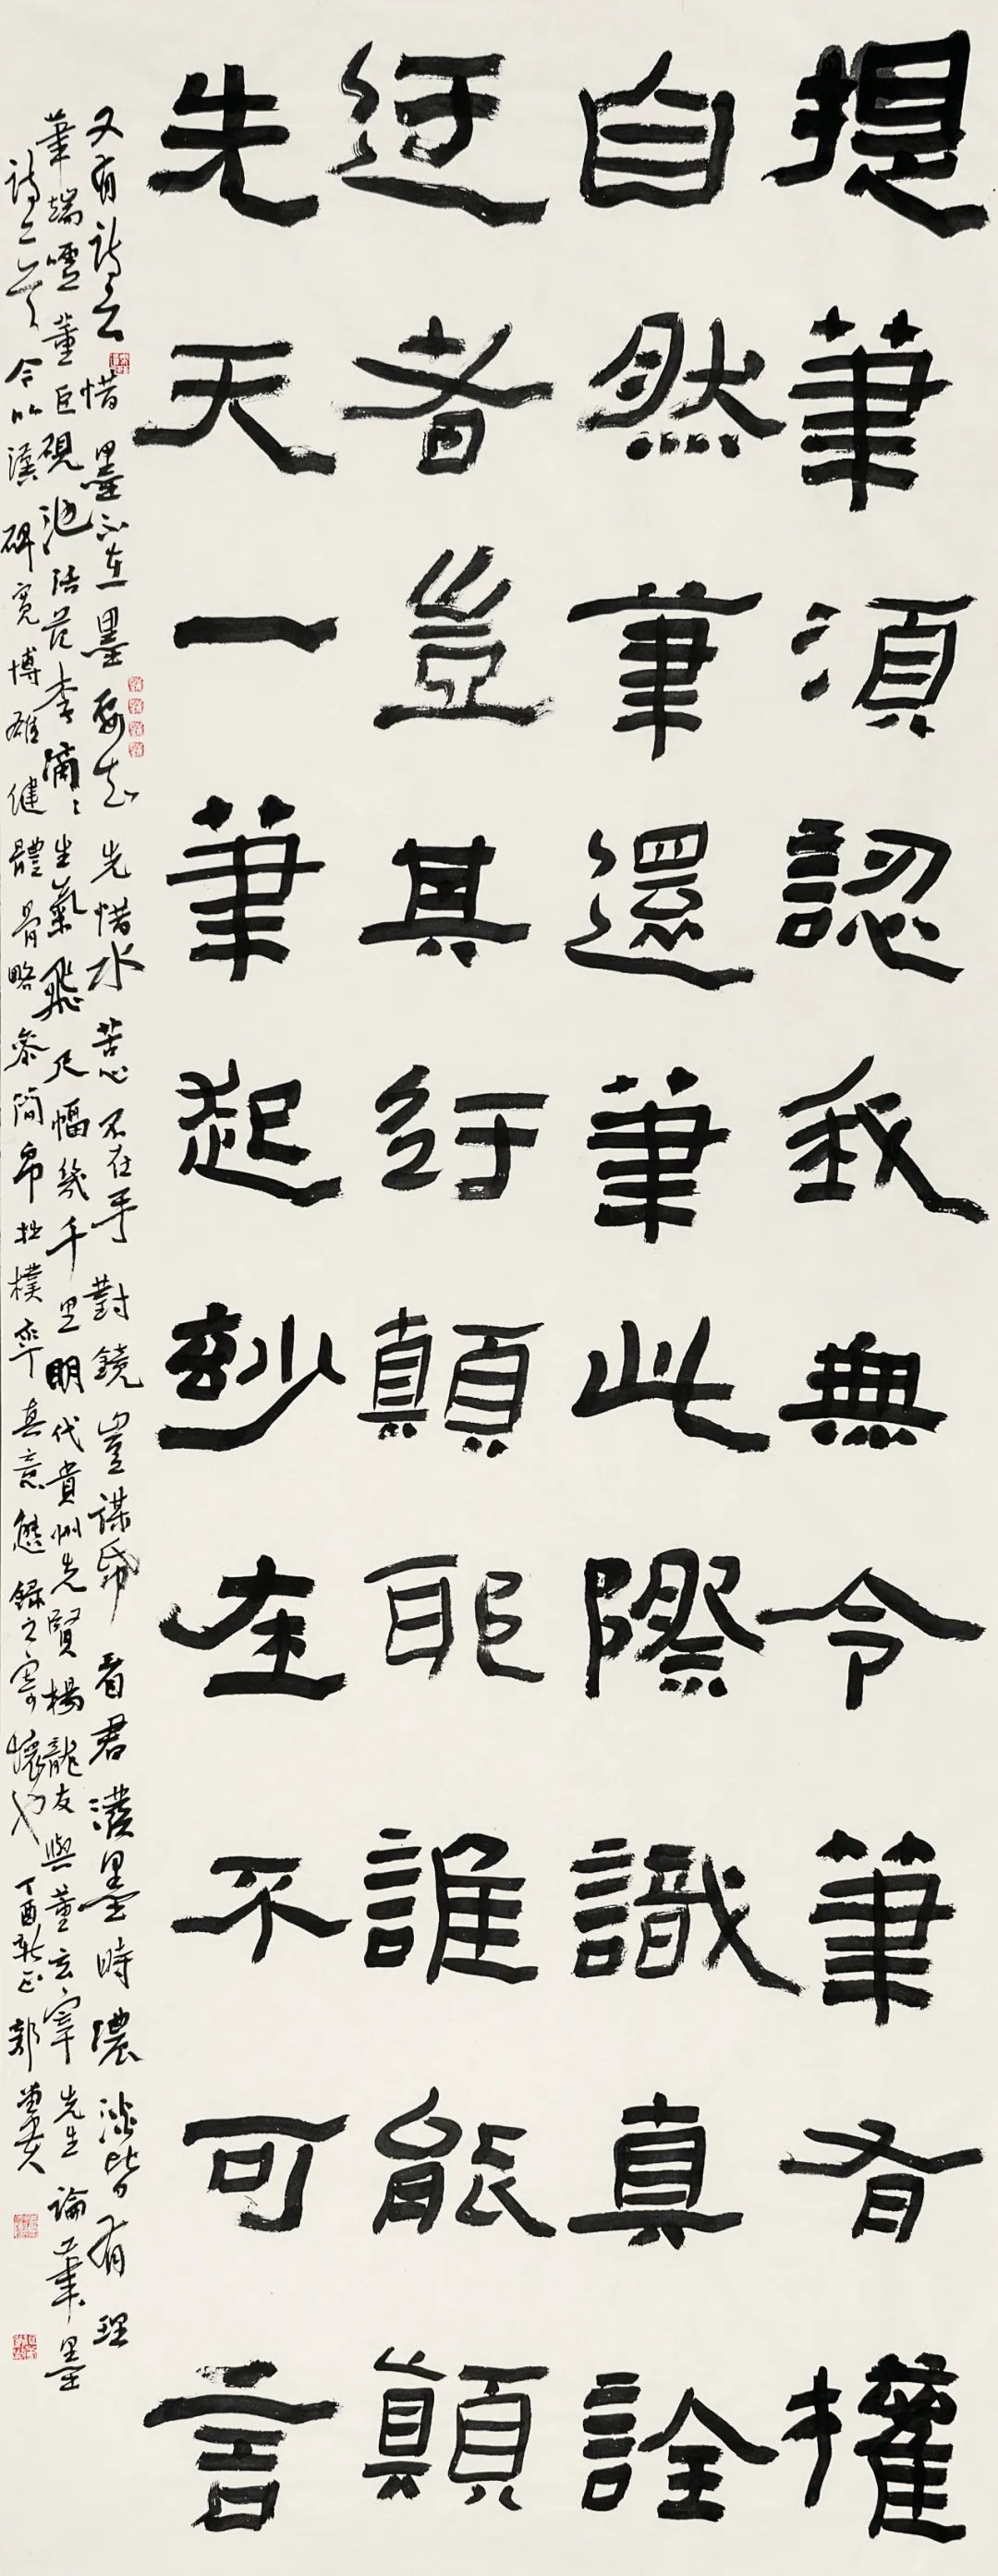 提筆須認我無令筆有權
自然筆還筆此際識真詮
迂者豈其紆顛耶誰能顛
先天一筆起妙在不可言
又有詩云惜墨不在墨要知先惜水苦心不在手對鏡豈謀鬚看君潑墨時濃淡皆有理
筆端噓董巨硯池活范李滴滴生氣飛尺幅幾千里明代貴州先賢楊龍友與董玄宰先生論筆墨
詩二首今以漢碑寬博雄健體骨略參簡帛拙樸率真意態錄之寄懷也丁酉新正